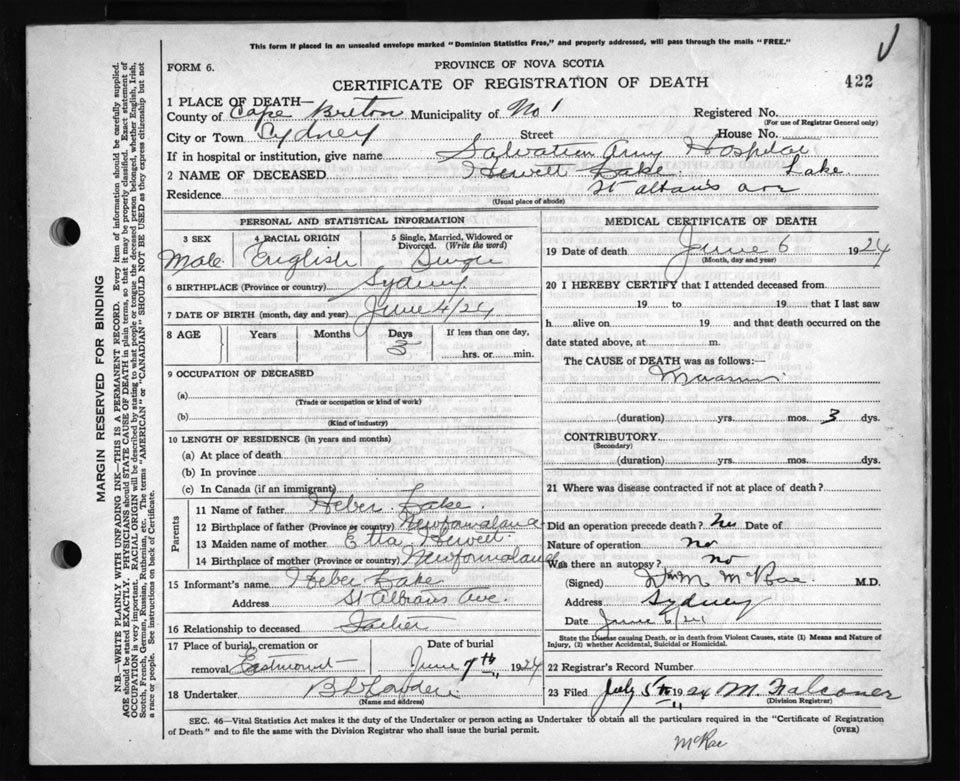 This form if placed in an unsealed envelope marked "Dominion Statistics Free," and properly addressed, will pass through the mails "FREE."
FORM 6.
PROVINCE OF NOVA SCOTIA
CERTIFICATE OF REGISTRATION OF DEATH
422
1 PLACE OF DEATH—
County of Cape Breton Municipality of No 1 Registered No.
(For use of Registrar General only)
City or Town Sydney Street House No.
If in hospital or institution, give name Salvation Army Hospital
2 NAME OF DECEASED Hewett Lake. Lake.
Residence St Alban's Ave
(Usual place of abode)
PERSONAL AND STATISTICAL INFORMATION
3 SEX 4 RACIAL ORIGIN 5 Single, Married, Widowed or Divorced. (Write the word)
Male English Single
6 BIRTHPLACE (Province or country) Sydney
7 DATE OF BIRTH (month, day and year) June 4/24
8 AGE Years Months Days If less than one day,
3 hrs. or min.
9 OCCUPATION OF DECEASED
(a)
(Trade or occupation or kind of work)
(b)
(Kind of industry)
10 LENGTH OF RESIDENCE (in years and months)
(a) At place of death
(b) In province
(c) In Canada (if an immigrant)
Parents
11 Name of father Heber Lake.
12 Birthplace of father (Province or country) Newfoundland
13 Maiden name of mother Etta Hewett.
14 Birthplace of mother (Province or country) Newfoundland
15 Informant's name Heber Lake
Address St Albans Ave.
16 Relationship to deceased Father
17 Place of burial, cremation or removal Eastmount Date of burial June 7th 1924
18 Undertaker
(Name and address)
MEDICAL CERTIFICATE OF DEATH
19 Date of death June 6 1924
(Month, day and year)
20 I HEREBY CERTIFY that I attended deceased from
19 to 19 that I last saw
h alive on 19 and that death occurred on the
date stated above, at m.
The CAUSE of DEATH was as follows:—
(duration) yrs. mos. 3 dys.
CONTRIBUTORY
(Secondary)
(duration) yrs. mos. dys.
21 Where was disease contracted if not at place of death?
Did an operation precede death? No Date of
Nature of operation No
Was there an autopsy? No
(Signed) Wm McRae M.D.
Address Sydney
Date June 6/24
State the Disease causing Death, or in death from Violent Causes, state (1) Means and Nature of Injury, (2) whether Accidental, Suicidal or Homicidal.
22 Registrar's Record Number
23 Filed July 5th 1924 M. Falconer
(Division Registrar)
SEC. 46—Vital Statistics Act makes it the duty of the Undertaker or person acting as Undertaker to obtain all the particulars required in the "Certificate of Registration
of Death" and to file the same with the Division Registrar who shall issue the burial permit. (OVER)
McRae
MARGIN RESERVED FOR BINDING
N.B.—WRITE PLAINLY WITH UNFADING INK—THIS IS A PERMANENT RECORD. Every item of information should be carefully supplied.
AGE should be stated EXACTLY. PHYSICIANS should STATE CAUSE OF DEATH in plain terms, so that it may be properly classified. Exact statement of
OCCUPATION is very important. RACIAL ORIGIN will be described by stating to what people or tongue the deceased person belonged, whether English, Irish,
Scotch, French, German, Russian, Ruthenian, etc. The terms "AMERICAN" or "CANADIAN" SHOULD NOT BE USED as they express citizenship but not
a race or people. See instructions on back of Certificate.